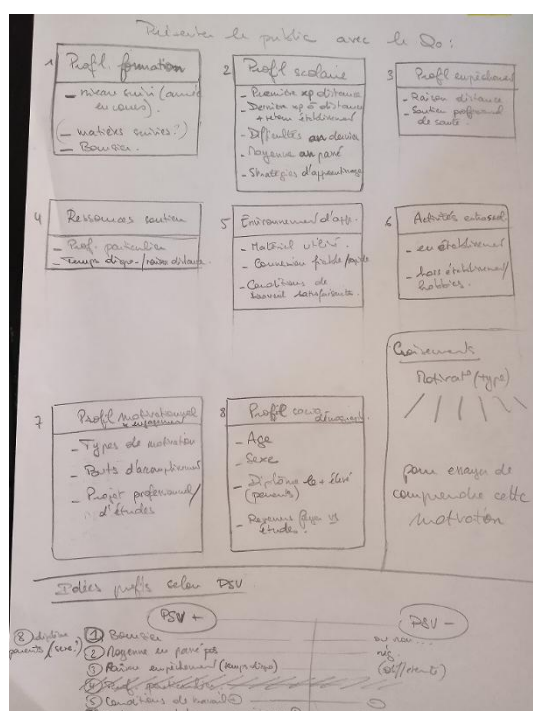 Présenter le public avec le Qo :
1 Profil formation
- niveau suivi (année en cours).
(- matières suivies ?)
- Boursier.
2 Profil scolaire
- Première xp distance
- Dernière xp à distance
+ retour établissement
- Difficultés an dernier
- Moyenne an passé
- Stratégies d'apprentissage
3 Profil empêchement
- Raison distance
- Soutien professionnel
de santé.
4 Ressources soutien
- Prof. particulier
- Temps dispo-/raison distance.
5 Environnement d'app.
- Matériel utilisé.
- Connexion fiable/rapide
- Conditions de
travail satisfaisante.
6 Activités extrascol
- en établissement
- hors établissement/
hobbies.
7 Profil motivationnel
x engagement
- Types de motivation
- Buts d'accomplissement
- Projet professionnel/
d'études
8 Profil socio démograph.
- Age
- Sexe
- Diplôme le + élevé
(parents)
- Revenus foyer vs
études.
Croisements
Motivat° (type)
pour essayer de
comprendre cette
motivation
Idées profils selon PSV
PSV +
PSV -
⑧ diplôme
parents / (sexe ?)
① Boursier
ou non...
② Moyenne en passé pos
nég.
③ Raison empêchement (temps dispo)
(différents)
④ Prof. particulier
⑤ Conditions de travail